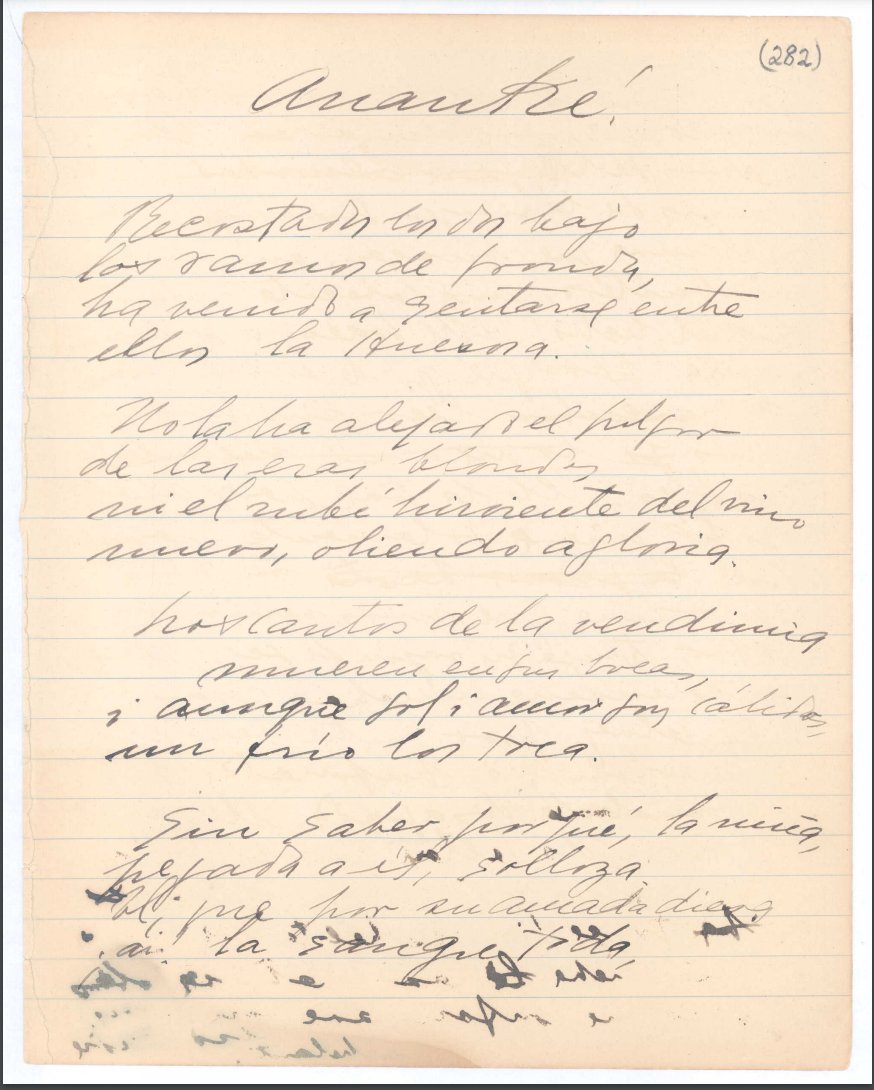 (282)
Ananké!
Recostados los dos bajo
los ramos de fronda,
ha venido a sentarse entre
ellos la Huesosa.
No la ha alejado el fulgor
de las eras blondas
ni el rubí hirviente del vino
nuevo, oliendo a gloria.
Los cantos de la vendimia
mueren en sus bocas,
i aunque sol i amor son cálidos,
un frío los toca.
Sin saber por qué, la niña,
pegada a él, solloza
él, que por su amada diera
ai! la sangre toda,